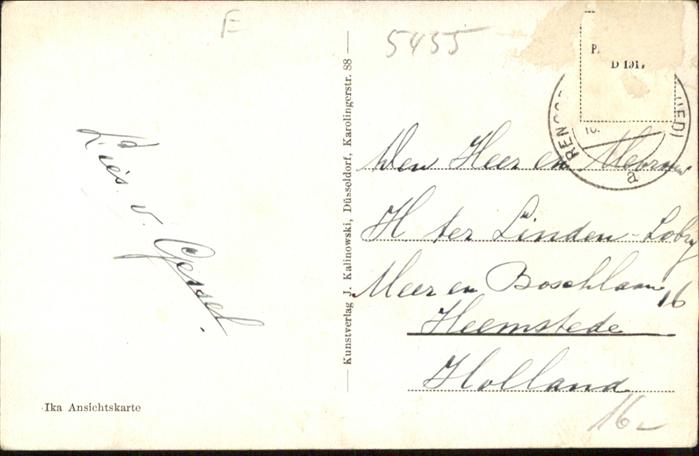 E
5455
P.
D 191
RENGS
(WIED)
10.
a
Kunstverlag J. Kalinowski, Düsseldorf, Karolingerstr. 88
Lies. v. Gessel.
Den Heer en Mevrouw
H ter Linden-Lobry
Meer en Boschlaan 16
Heemstede
Holland
16-
Ika Ansichtskarte